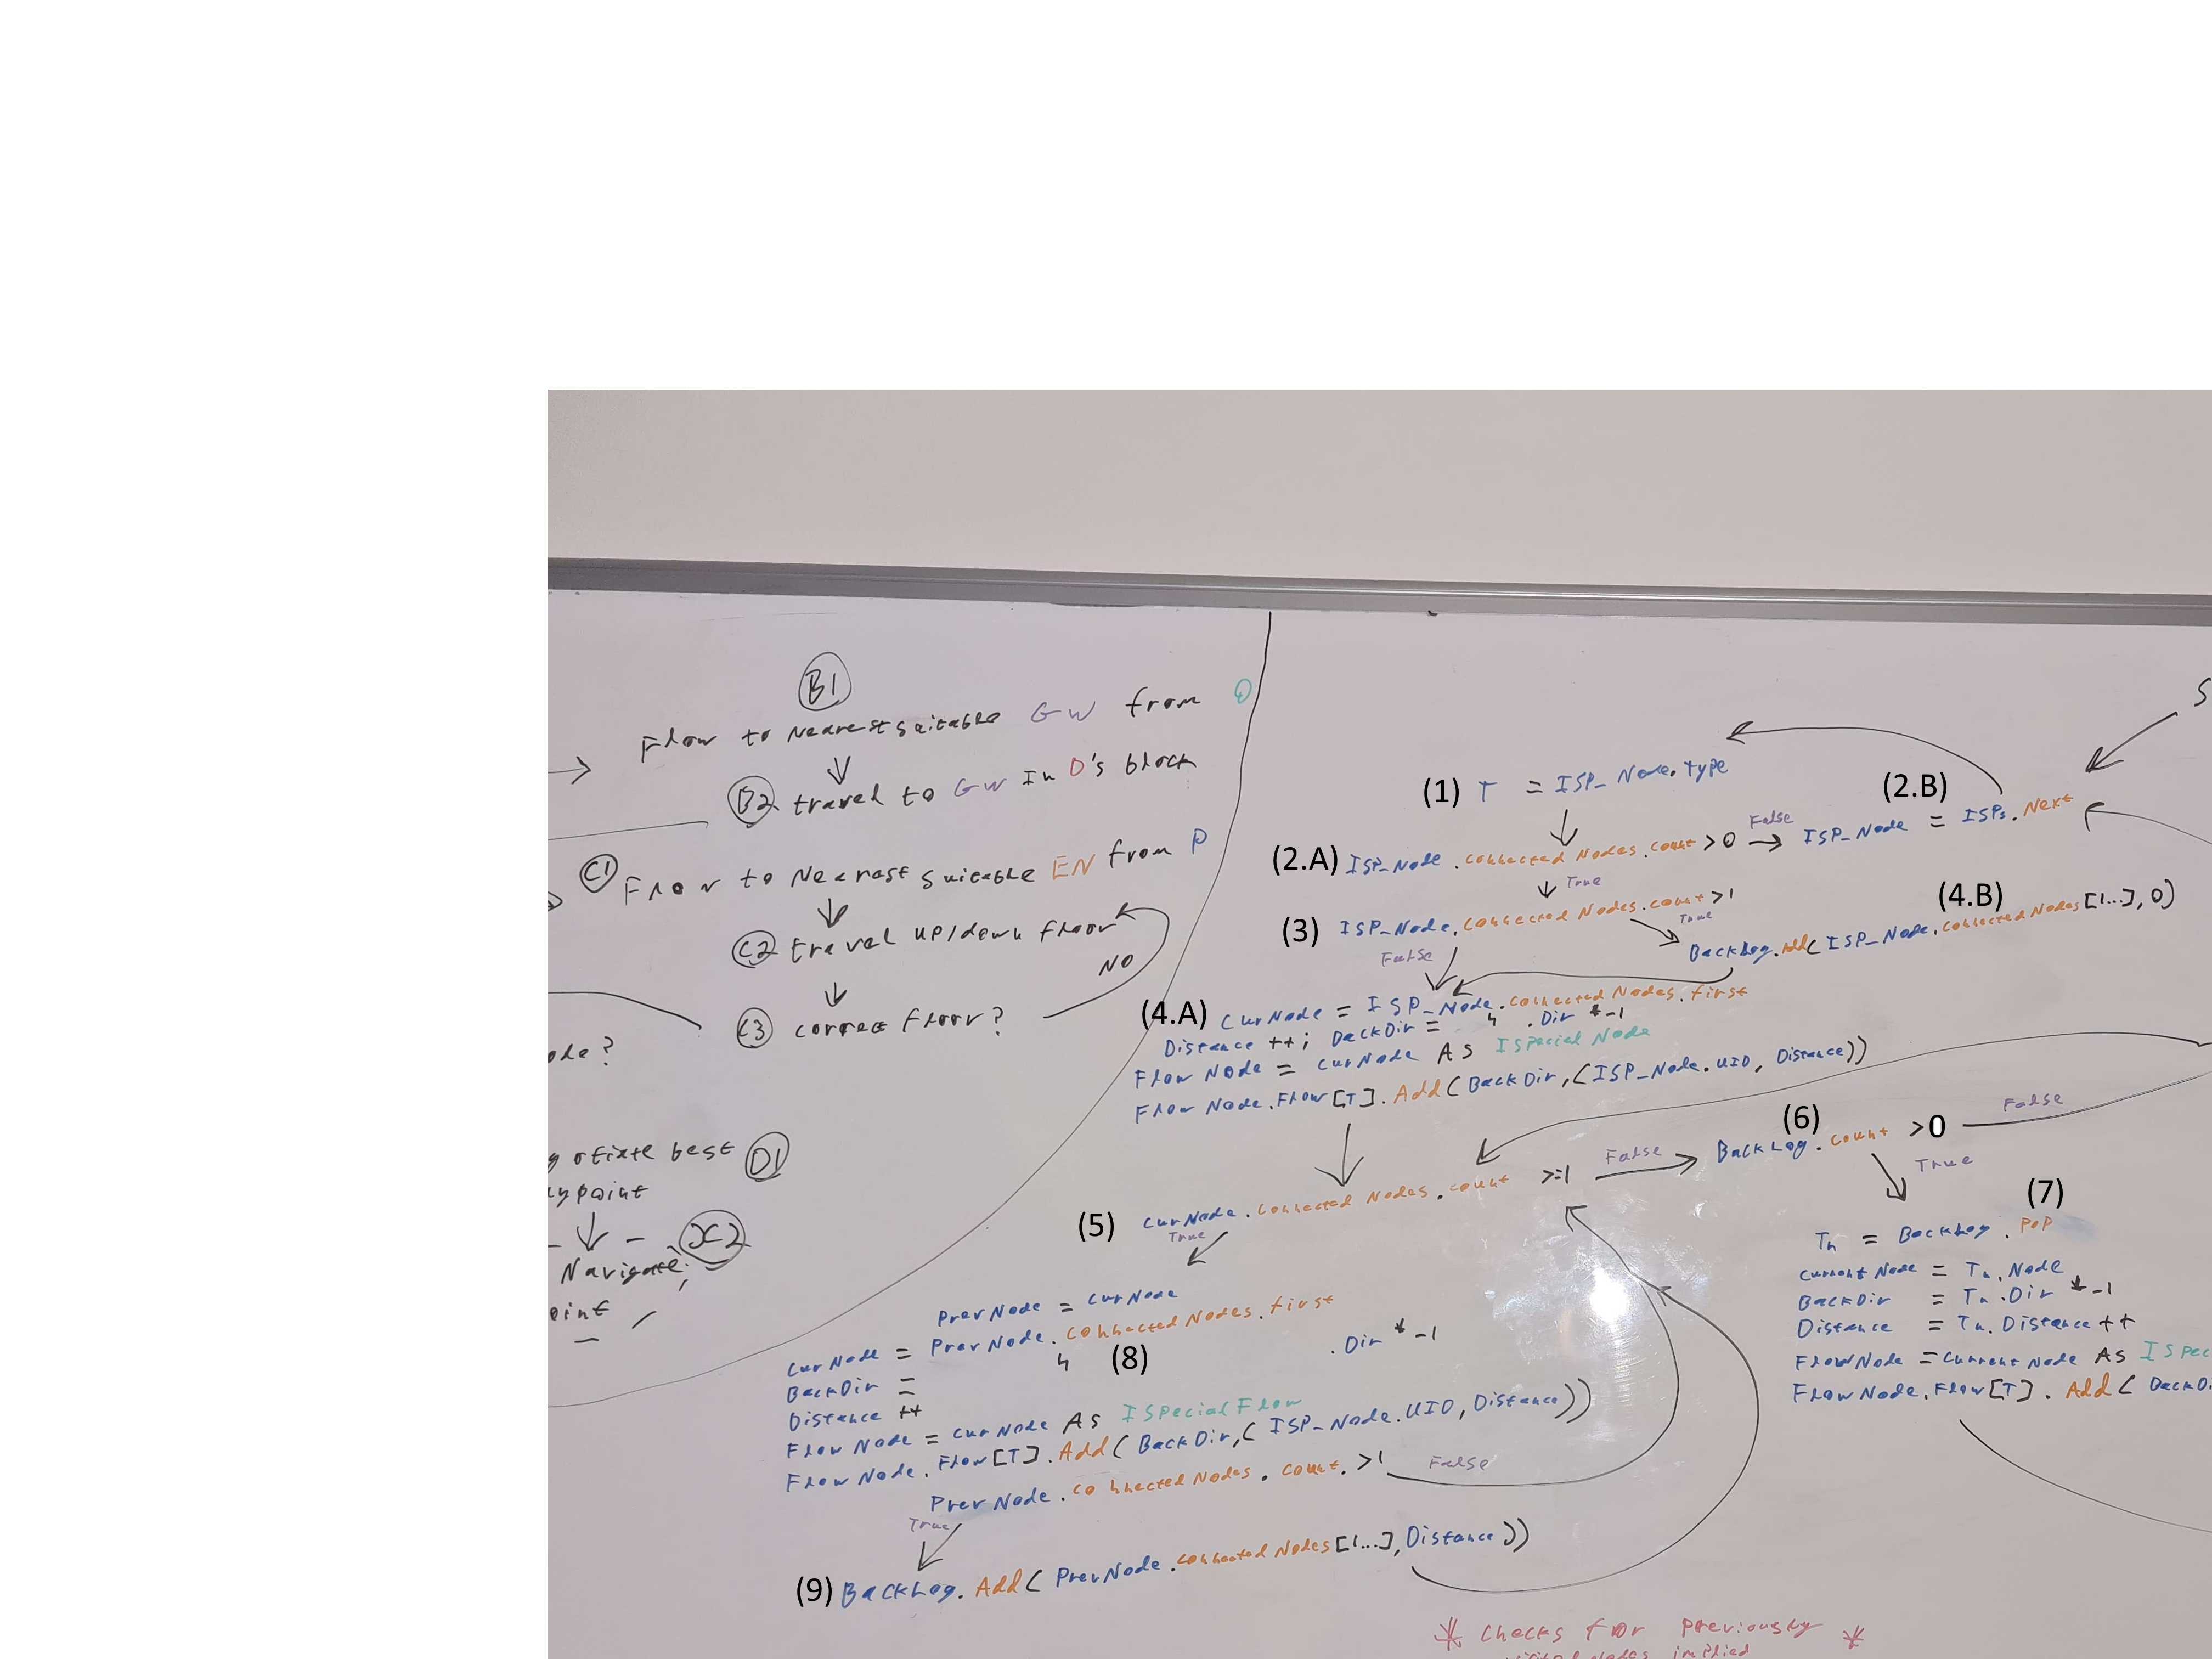 B1
Flow to Nearest suitable GW from O
B2 travel to GW In D's block
C1 Flow to Nearest suitable EN from P
C2 travel up/down floor
NO
C3 correct floor?
best D1
X2
Navigate;
S
(1) T = ISP_Node.type
(2.A) ISP_Node.connected Nodes.count >0 False
(2.B) ISP_Node = ISPs.Next
True
(3) ISP_Node.connected Nodes.count >1
True
(4.B) BackLog.Add(ISP_Node.connected Nodes[1...],0)
False
(4.A) CurNode = ISP_Node.connected Nodes.first
Distance ++; BackDir = 4 .Dir *-1
Flow Node = CurNode As ISpecial Node
Flow Node.Flow[T].Add(BackDir,(ISP_Node.UID, Distance))
(5) CurNode.connected Nodes.count >=1 False
(6) BackLog.count >0 False
True
True
(7) Tn = BackLog.POP
Current Node = Tn.Node
BackDir = Tn.Dir *-1
Distance = Tn.Distance++
FlowNode = Current Node As ISpec
FlowNode.Flow[T].Add(
PrevNode = CurNode
CurNode = PrevNode.connected Nodes.first
BackDir = 4 (8) .Dir *-1
Distance ++
Flow Node = CurNode As ISpecialFlow
Flow Node.Flow[T].Add(BackDir,(ISP_Node.UID,Distance))
PrevNode.connected Nodes.count.>1 False
True
(9) BackLog.Add(PrevNode.connected Nodes[1...],Distance))
* Checks for previously *
Nodes implied